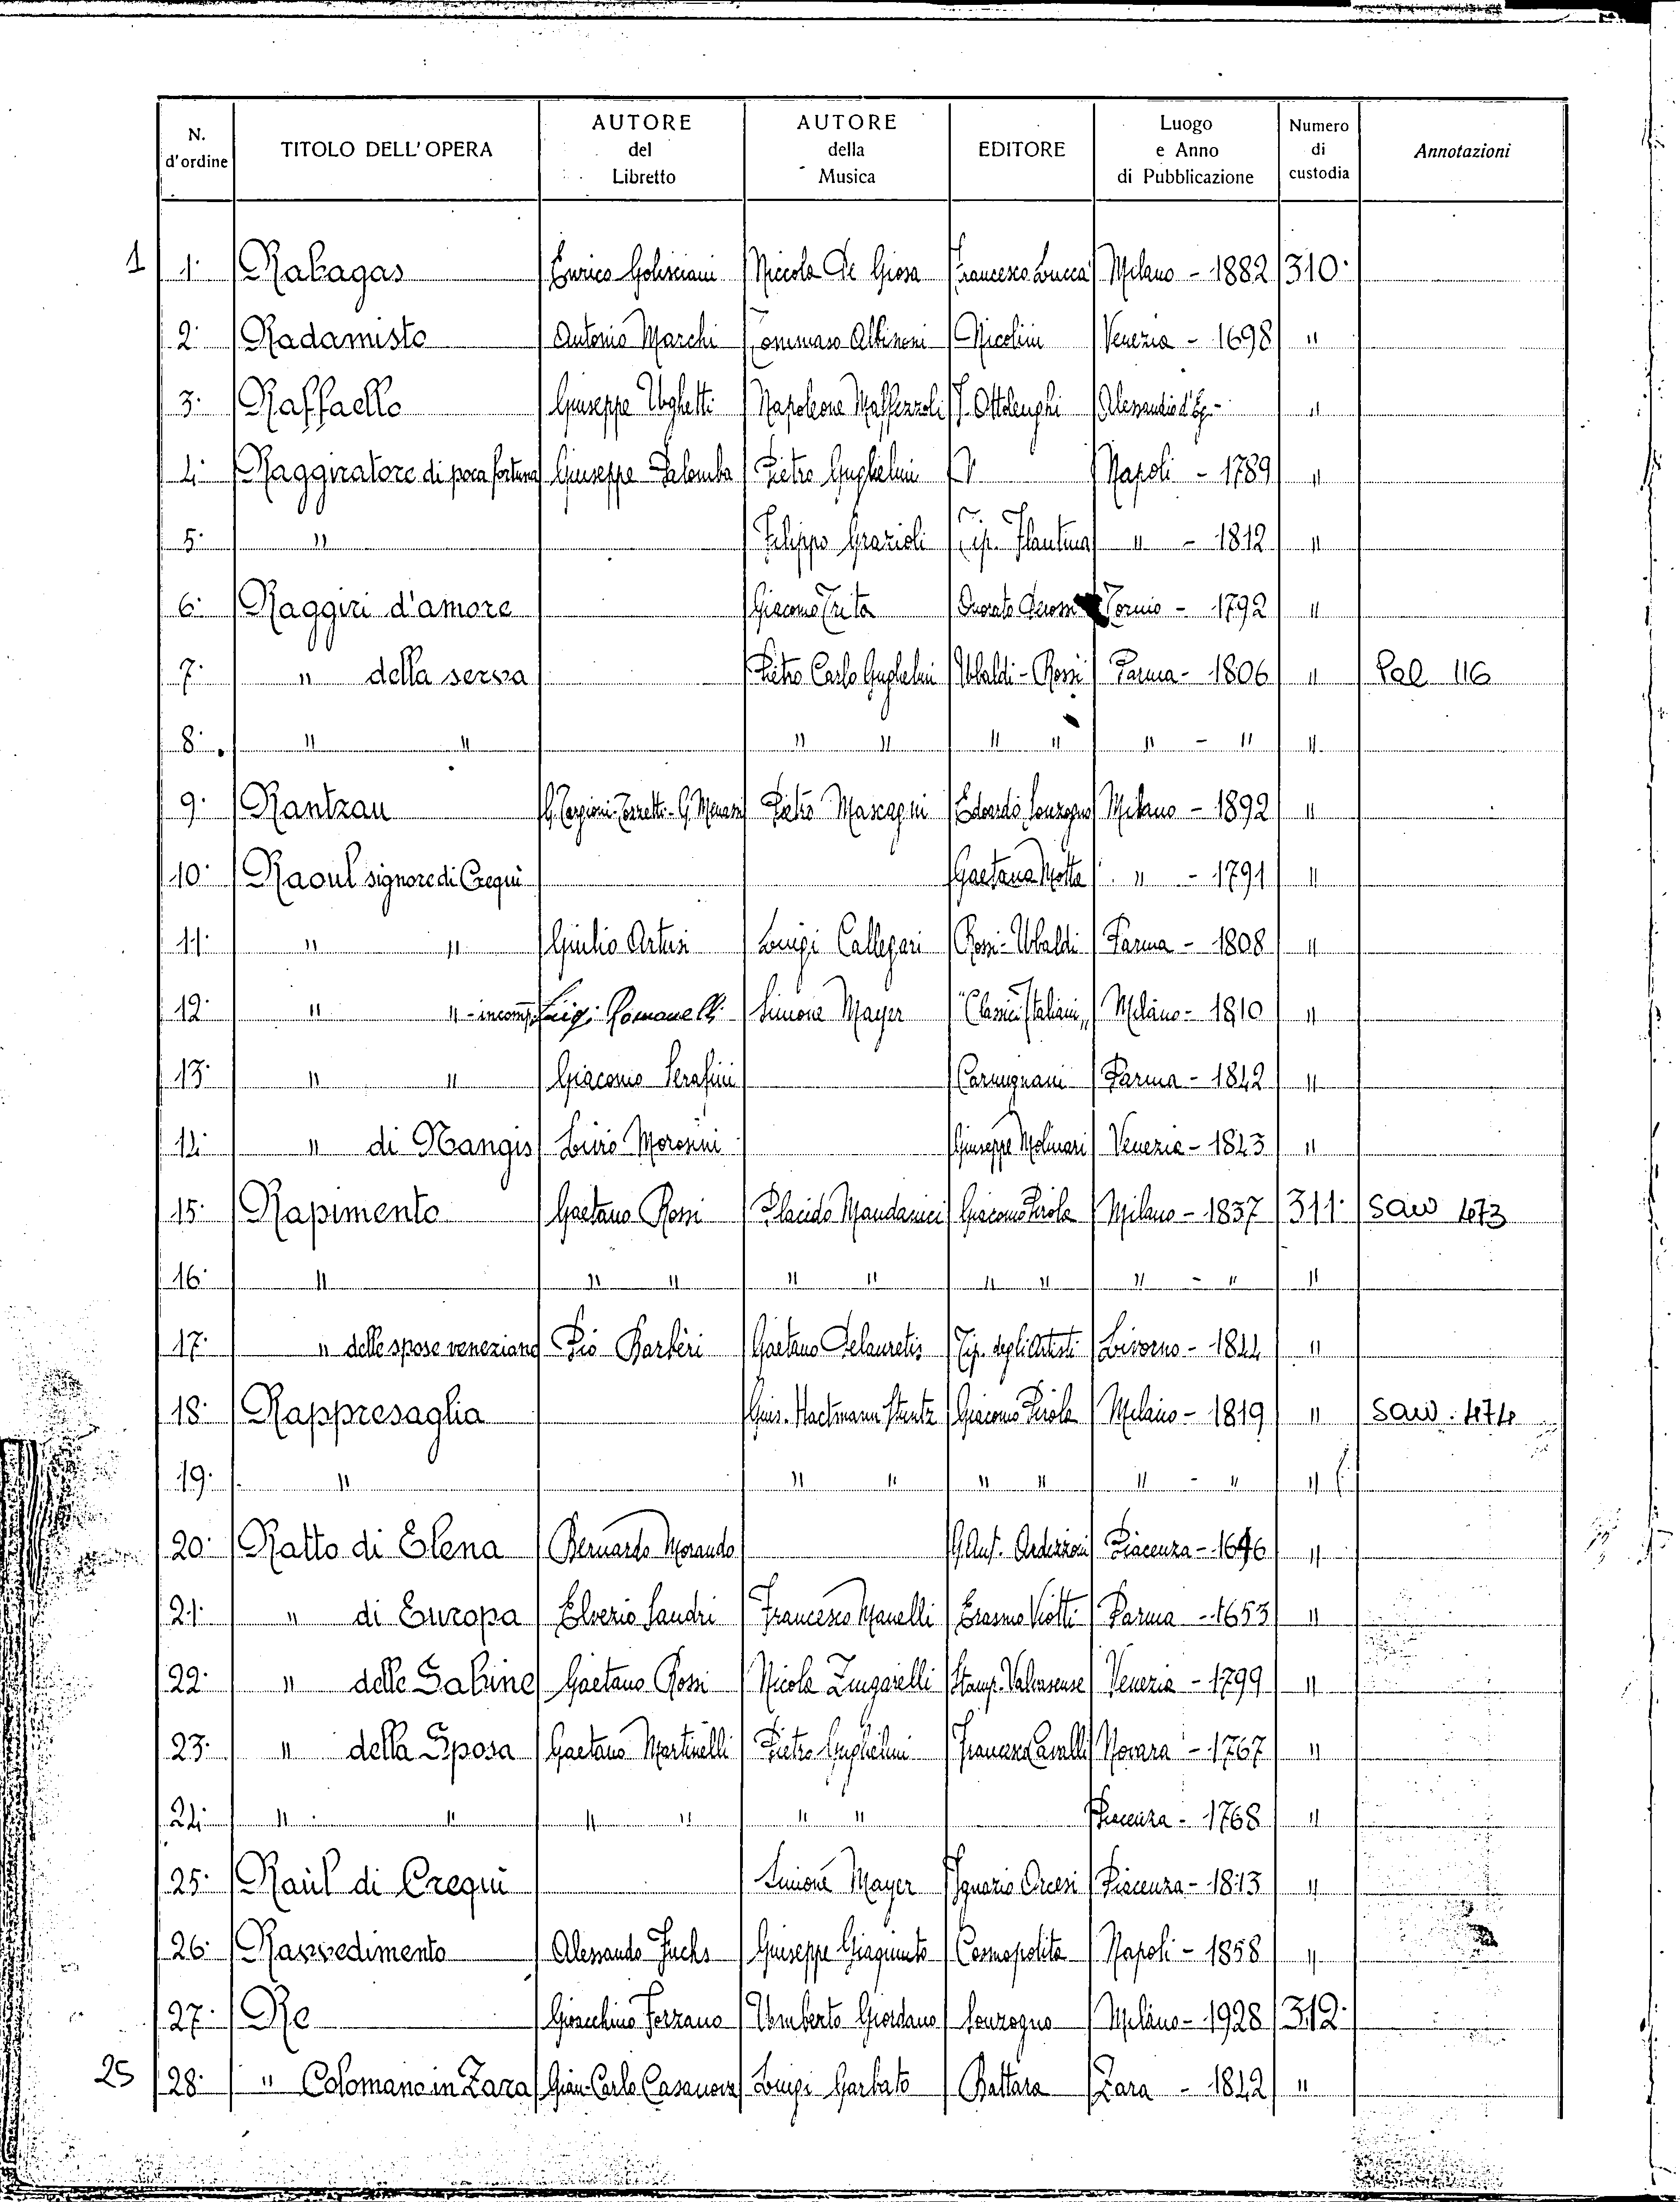 N. d'ordine TITOLO DELL'OPERA AUTORE del Libretto AUTORE della Musica EDITORE Luogo e Anno di Pubblicazione Numero di custodia Annotazioni
1 1. Rabagas Enrico Golisciani Niccola De Giosa Francesco Lucca Milano - 1882 310.
2. Radamisto Antonio Marchi Tommaso Albinoni Nicolini Venezia - 1698 "
3. Raffaello Giuseppe Ughetti Napoleone Maffezzoli J. Ottolenghi Alessandria d'Eg. - "
4. Raggiratore di poca fortuna Giuseppe Palomba Pietro Guglielmi Napoli - 1789 "
5. " Filippo Grazioli Tip. Flautina " - 1812 "
6. Raggiri d'amore Giacomo Trita Onorato Derossi Torino - 1792 "
7. " della serva Pietro Carlo Guglielmi Ubaldi - Rossi Parma - 1806 " Pal 116
8. " " " " " " " - " "
9. Rantzau G. Targioni-Tozzetti - G. Menasci Pietro Mascagni Edoardo Sonzogno Milano - 1892 "
10. Raoul signore di Crequi Gaetano Motta " - 1791 "
11. " " Giulio Artusi Luigi Callegari Rossi - Ubaldi Parma - 1808 "
12. " " - incomp. Luigi Romanelli Simone Mayer "Classici Italiani" Milano - 1810 "
13. " " Giacomo Serafini Carmignani Parma - 1842 "
14. " di Nangis Livio Morosini Giuseppe Molinari Venezia - 1843 "
15. Rapimento Gaetano Rossi Placido Mandanici Giacomo Pirola Milano - 1837 311. Saw 473
16. " " " " " " " " - " "
17. " delle spose veneziane Pio Barbèri Gaetano Delauretis Tip. degli Artisti Livorno - 1844 "
18. Rappresaglia Gius. Hactmann Stuntz Giacomo Pirola Milano - 1819 " Saw. 474
19. " " " " " " - " "
20. Ratto di Elena Bernardo Morando G. Ant. Ardizzoni Piacenza - 1646 "
21. " di Europa Elverio Sandri Francesco Manelli Erasmo Viotti Parma - 1653 "
22. " delle Sabine Gaetano Rossi Nicola Zingarelli Stamp. Valvasense Venezia - 1799 "
23. " della Sposa Gaetano Martinelli Pietro Guglielmi Francesco Cavalli Novara - 1767 "
24. " " " " " " Piacenza - 1768 "
25. Raùl di Crequi Simone Mayer Ignazio Orcesi Piacenza - 1813 "
26. Ravvedimento Alessandro Fuchs Giuseppe Giaquinto Cosmopolita Napoli - 1858 "
27. Re Gioacchino Forzano Umberto Giordano Sonzogno Milano - 1928 312.
25 28. " Colomano in Zara Gian-Carlo Casanova Luigi Garbato Battara Zara - 1842 "